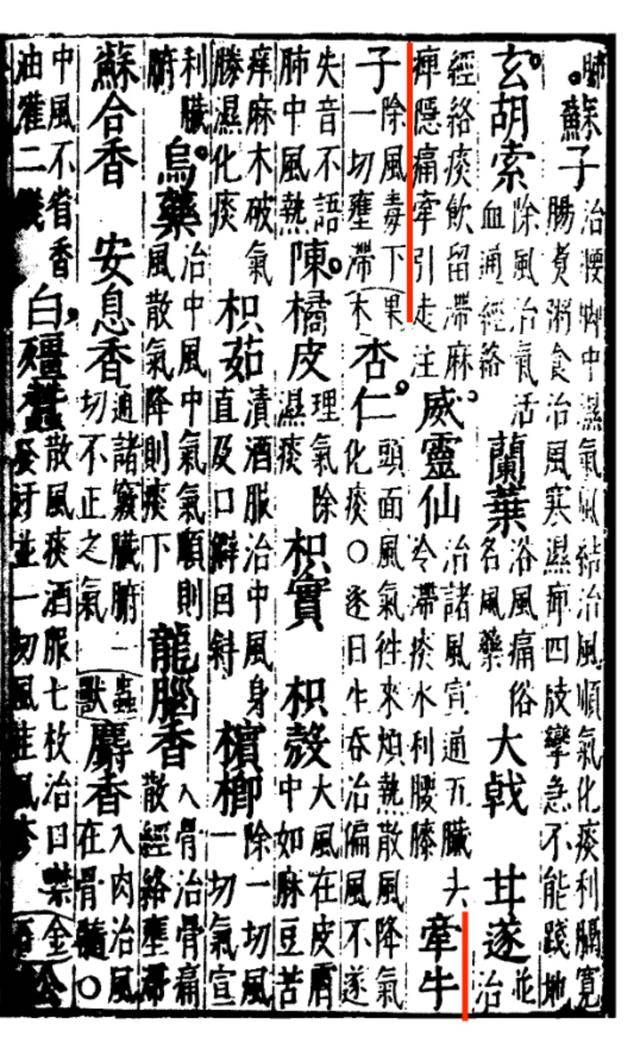 蘇子治腰脚中濕氣風結治風順氣化痰利膈寬腸煮粥食治風寒濕痹四肢攣急不能踐地
玄胡索除風治氣活血通經絡 蘭葉浴風痛俗名風藥 大戟 甘遂並治
經絡痰飲留滯麻痺隱痛牽引走注 威靈仙治諸風宣通五臟去冷滯痰水利腰膝 牽牛
子除風毒下一切壅滯 果木 杏仁頭面風氣往來煩熱散風降氣化痰○逐日生吞治偏風不遂
失音不語肺中風熱 陳橘皮理氣除濕痰 枳實 枳殼大風在皮膚中如麻豆苦
痒麻木破氣勝濕化痰 枳茹漬酒服治中風身直及口僻目斜 檳榔除一切風一切氣宣
利臟腑 烏藥治中風中氣氣順則風散氣降則痰下 龍腦香入骨治骨痛散經絡壅滯
蘇合香 安息香通諸竅臟腑一切不正之氣 蟲獸 麝香入肉治風在骨髓○
中風不省香油灌二錢 白殭蠶散風痰酒服七枚治口噤發汗並一切風疰風疹 金